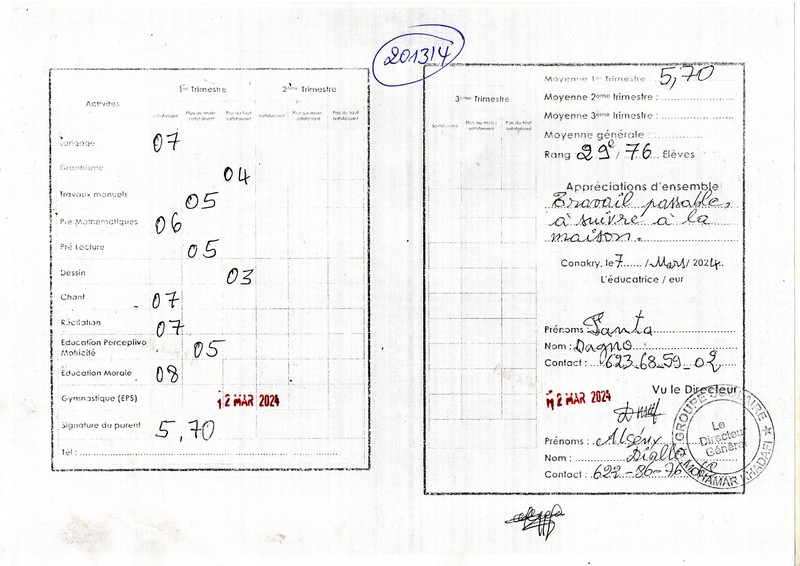 201314
Activités
1er Trimestre
2ème Trimestre
satisfaisant
Plus ou moins satisfaisant
Pas du tout satisfaisant
satisfaisant
Plus ou moins satisfaisant
Pas du tout satisfaisant
Langage 07
Graphisme 04
Travaux manuels 05
Pré Mathématiques 06
Pré Lecture 05
Dessin 03
Chant 07
Récitation 07
Education Perceptivo Motricité 05
Education Morale 08
Gymnastique (EPS)
12 MAR 2024
Signature du parent 5,70
Tél :
3ème Trimestre
Satisfaisant
Plus ou moins satisfaisant
Pas du tout satisfaisant
Moyenne 1er Trimestre : 5,70
Moyenne 2ème trimestre :
Moyenne 3ème trimestre :
Moyenne générale :
Rang 29e / 76 Elèves
Appréciations d'ensemble
Travail passable,
à suivre à la
maison.
Conakry, le 7 / Mars / 2024.
L'éducatrice / eur
Prénoms : Fanta
Nom : Dagno
Contact : 623-68-59-02
Vu le Directeur
12 MAR 2024
Prénoms : Alsény
Nom : Diallo
Contact : 622-86-76
GROUPE SCOLAIRE
Le
Directeur
Général
MOHAMAR KHADAFI